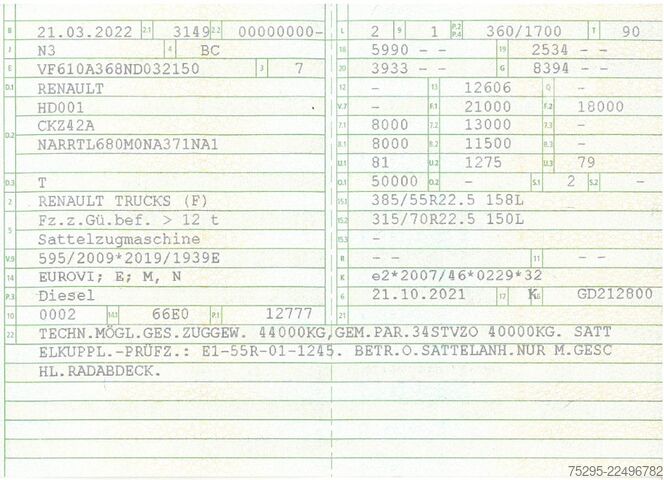 B 21.03.2022 2.1 3149 2.2 00000000-
J N3 4 BC
E VF610A368ND032150 3 7
D.1 RENAULT
HD001
D.2 CKZ42A
NARRTL680M0NA371NA1
D.3 T
2 RENAULT TRUCKS (F)
5 Fz.z.Gü.bef. > 12 t
Sattelzugmaschine
V.9 595/2009*2019/1939E
14 EUROVI; E; M, N
P.3 Diesel
10 0002 14.1 66E0 P.1 12777
L 2 9 1 P.2 P.4 360/1700 T 90
18 5990 - - 19 2534 - -
20 3933 - - G 8394 - -
12 - 13 12606 Q -
V.7 - F.1 21000 F.2 18000
7.1 8000 7.2 13000 7.3 -
8.1 8000 8.2 11500 8.3 -
U.1 81 U.2 1275 U.3 79
O.1 50000 O.2 - S.1 2 S.2 -
15.1 385/55R22.5 158L
15.2 315/70R22.5 150L
15.3 -
R - - 11 - -
K e2*2007/46*0229*32
6 21.10.2021 17 K 16 GD212800
21
22 TECHN.MÖGL.GES.ZUGGEW. 44000KG,GEM.PAR.34STVZO 40000KG. SATT
ELKUPPL.-PRÜFZ.: E1-55R-01-1245. BETR.O.SATTELANH.NUR M.GESC
HL.RADABDECK.
75295-22496782